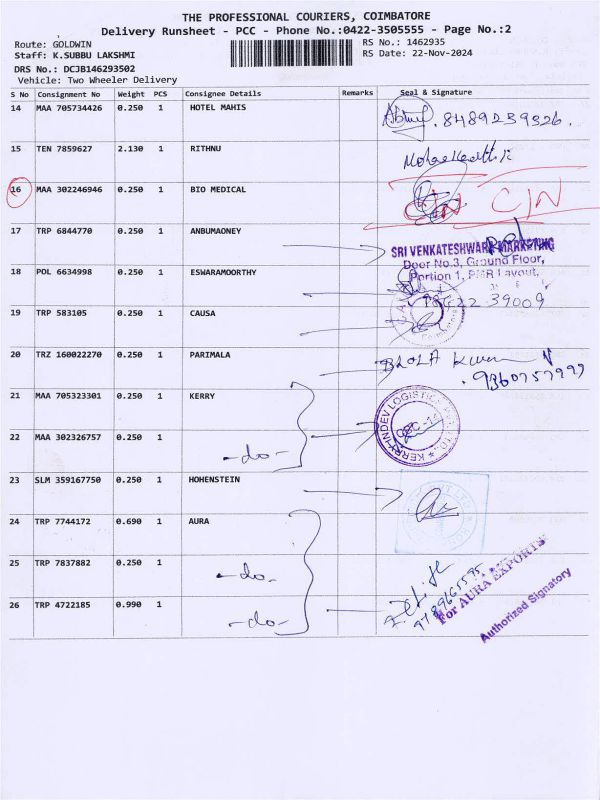 THE PROFESSIONAL COURIERS, COIMBATORE
Delivery Runsheet - PCC - Phone No.:0422-3505555 - Page No.:2
Route: GOLDWIN
RS No.: 1462935
Staff: K.SUBBU LAKSHMI
RS Date: 22-Nov-2024
DRS No.: DCJB146293502
Vehicle: Two Wheeler Delivery
S No Consignment No Weight PCS Consignee Details Remarks Seal & Signature
14 MAA 705734426 0.250 1 HOTEL MAHIS 8489239326.
15 TEN 7859627 2.130 1 RITHNU
16 MAA 302246946 0.250 1 BIO MEDICAL C/N
17 TRP 6844770 0.250 1 ANBUMAONEY
SRI VENKATESHWARA MARKETING
Door No.3, Ground Floor,
Portion 1, PMR Layout,
18 POL 6634998 0.250 1 ESWARAMOORTHY
19 TRP 583105 0.250 1 CAUSA
Coimbatore
20 TRZ 160022270 0.250 1 PARIMALA
21 MAA 705323301 0.250 1 KERRY
22 MAA 302326757 0.250 1 -do-
23 SLM 359167750 0.250 1 HOHENSTEIN
24 TRP 7744172 0.690 1 AURA
25 TRP 7837882 0.250 1 -do-
26 TRP 4722185 0.990 1 -do-
For AURA EXPORTS
Authorized Signatory